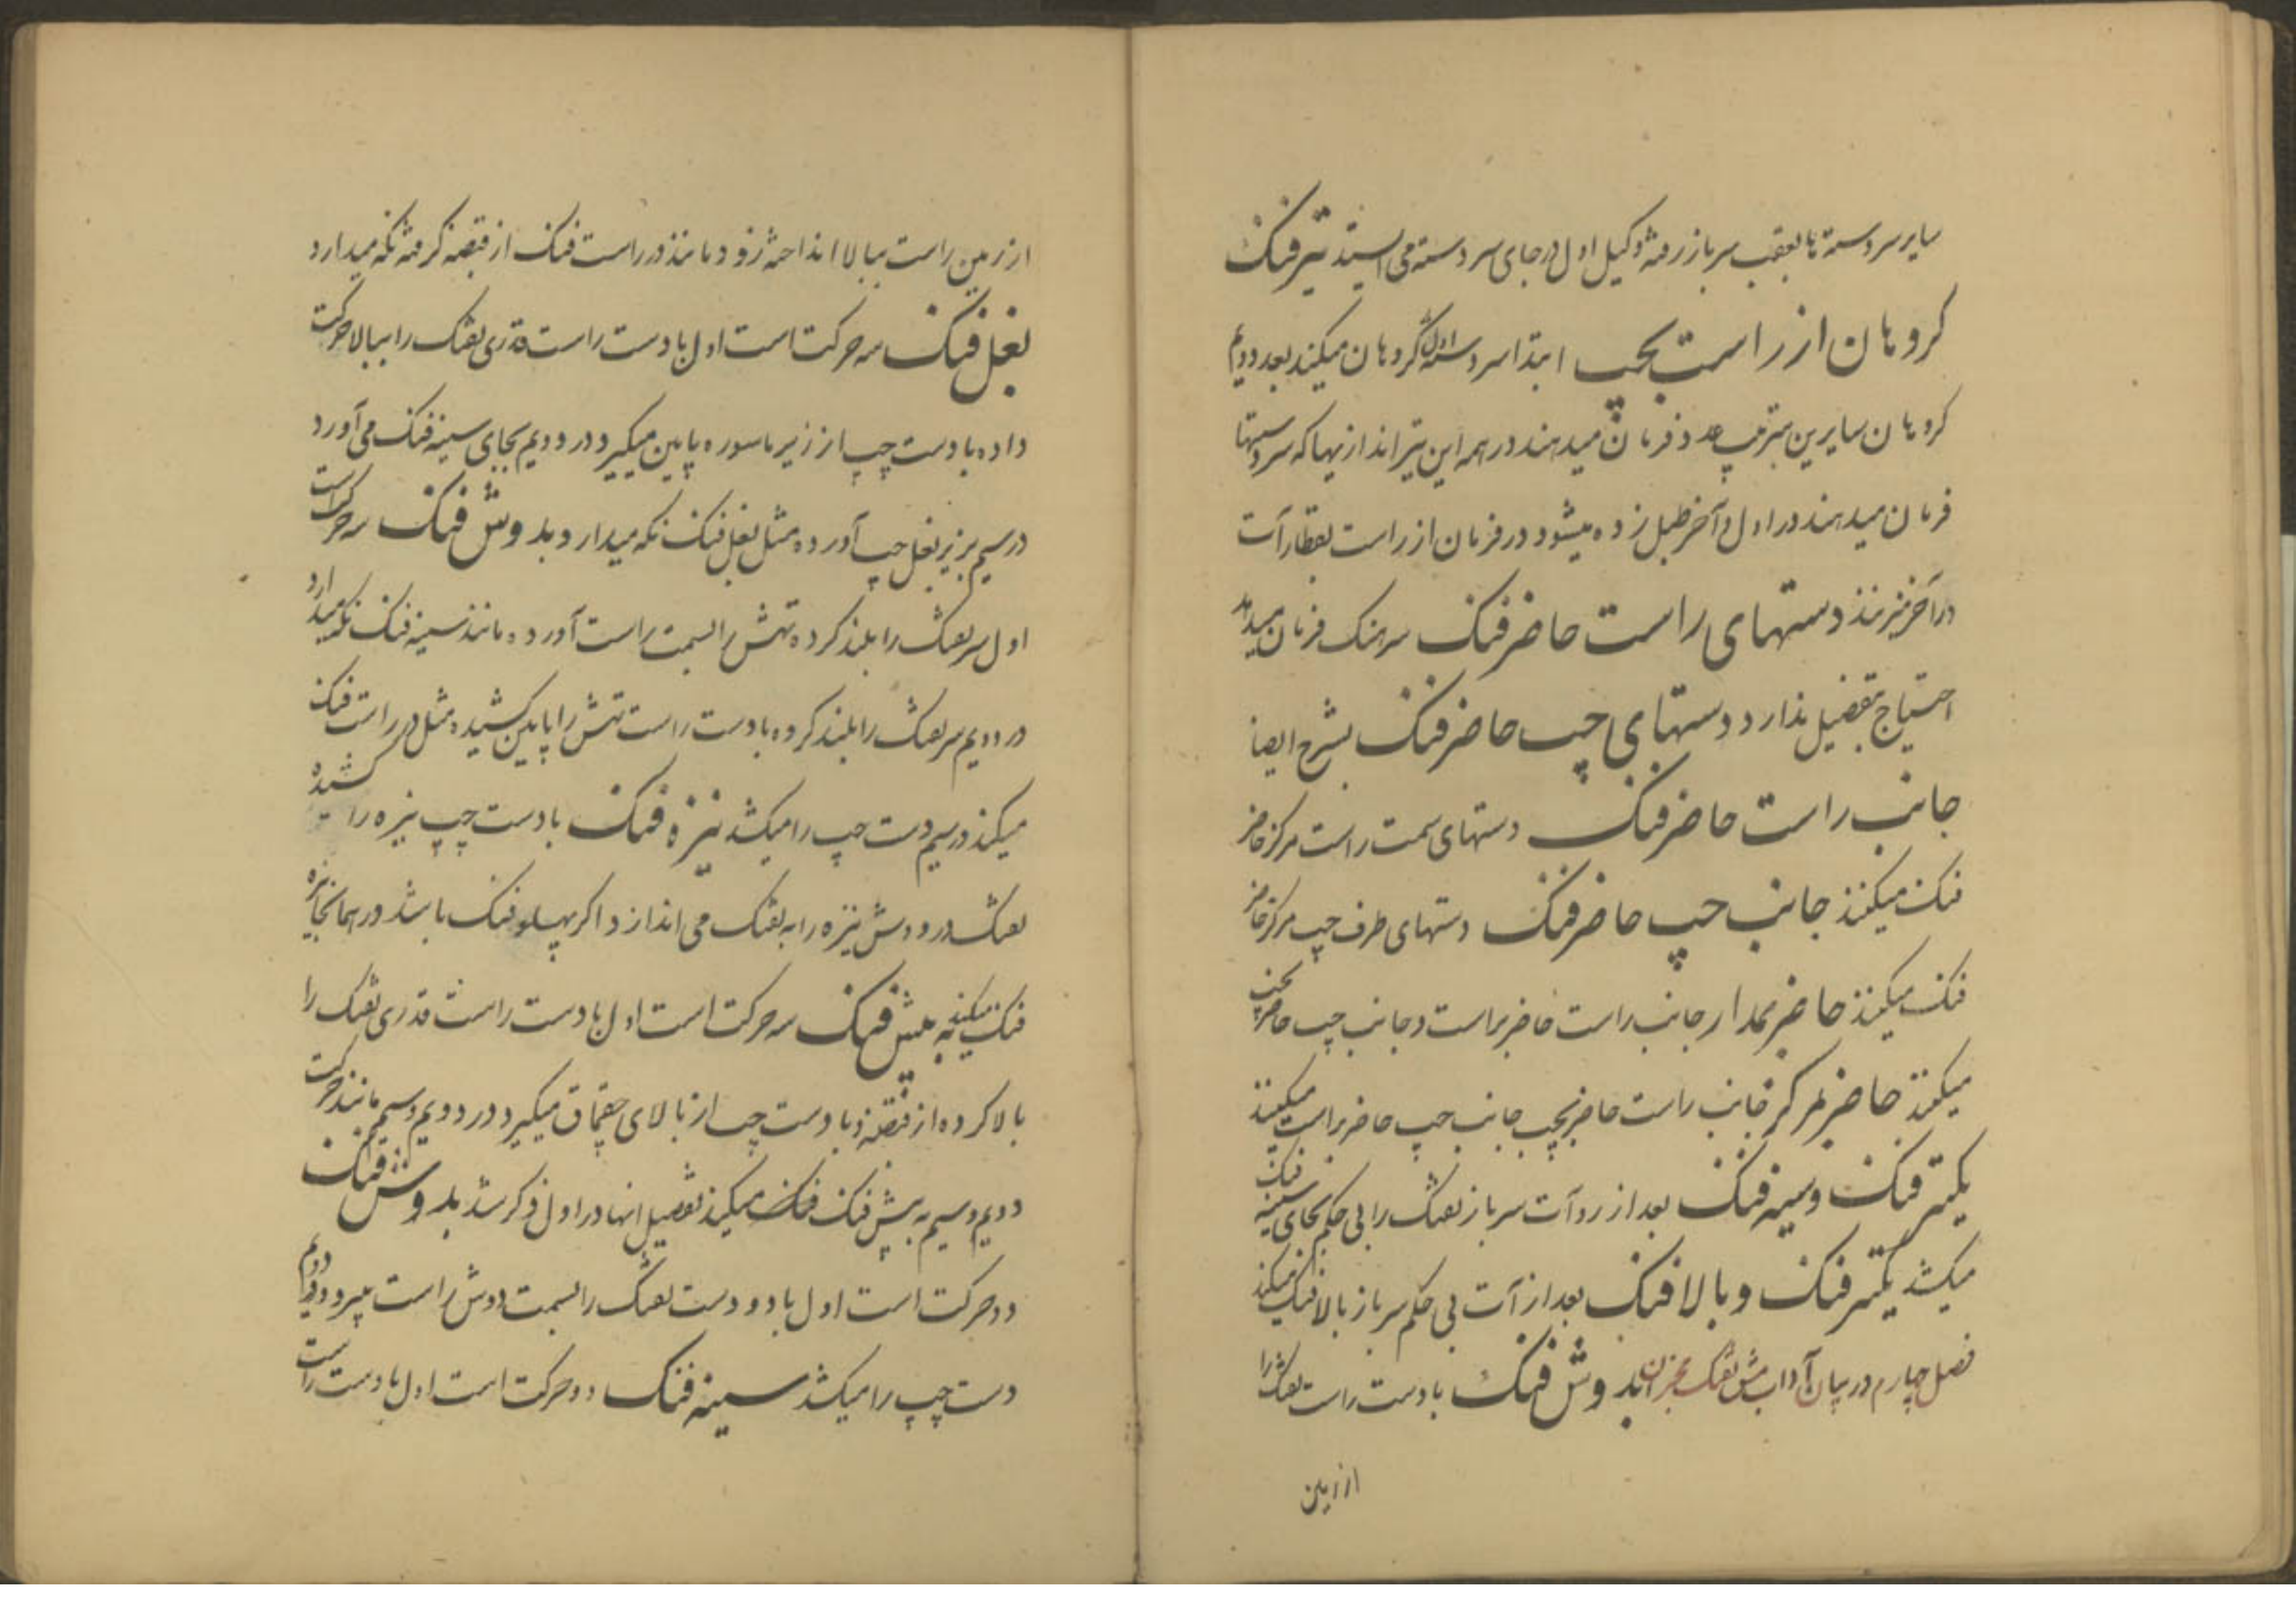 سایر سردسته ها بعقب سرباز رفته وکیل اول در جای سردسته می ایستد تیر فنک
کروهان از راست بچپ ابتدا سردسته اول کروهان میکند بعد دویم
کروهان سایرین بترتیب فرمان میدهند در همه این تیراندازیها که سردستها
فرمان میدهند در اول و آخر طبل زده میشود در فرمان از راست بقطار آت
در آخر میزنند دستهای راست حاضر فنک سرهنک فرمان میدهد
احتیاج بتفصیل ندارد دستهای چپ حاضر فنک بشرح ایضا
جانب راست حاضر فنک دستهای سمت راست مرکز حاضر
فنک میکنند جانب چپ حاضر فنک دستهای طرف چپ مرکز حاضر
فنک میکنند حاضر بمدار جانب راست حاضر براست و جانب چپ حاضر بچپ
میکنند حاضر بمرکز جانب راست حاضر بچپ جانب چپ حاضر براست میکنند
یکتیر فنک و سینه فنک بعد از رو آت سرباز تفنک را بی حکم بجای سینه فنک
میکشد یکتیر فنک و بالا فنک بعد از آت بی حکم سرباز بالا فنک میکند
فصل چهارم در بیان آداب مشق تفنک بدوش فنک با دست راست تفنک را
از زمین
از زمین راست ببالا انداخته زود مانند در راست فنک از قبضه کرفته نکه میدارد
بغل فنک سه حرکت است اول با دست راست قدری تفنک را ببالا حرکت
داده با دست چپ از زیر ماسوره پایین میکیرد در دویم بجای سینه فنک می آورد
در سیم بزیر بغل چپ آورده مثل بغل فنک نکه میدارد بدوش فنک سه حرکت است
اول سر تفنک را بلند کرده تهش را بسمت راست آورده مانند سینه فنک نکه میدارد
در دویم سر تفنک را بلند کرده با دست راست تهش را پایین کشیده مثل در راست فنک
میکند در سیم دست چپ را میکشد نیزه فنک با دست چپ نیزه را کشیده
تفنک در دوش نیزه را به تفنک می اندازد اکر پهلو فنک باشد در همانجا نیزه
فنک میکند به پیش فنک سه حرکت است اول با دست راست قدری تفنک را
بالا کرده از قبضه و با دست چپ از بالای چقماق میکیرد و در دویم و سیم مانند حرکت
دویم و سیم به پیش فنک میکند تفصیل اینها در اول ذکر شد بدوش فنک
دو حرکت است اول با دو دست تفنک را بسمت دوش راست میبرد در دویم
دست چپ را میکشد سینه فنک دو حرکت است اول با دست راست